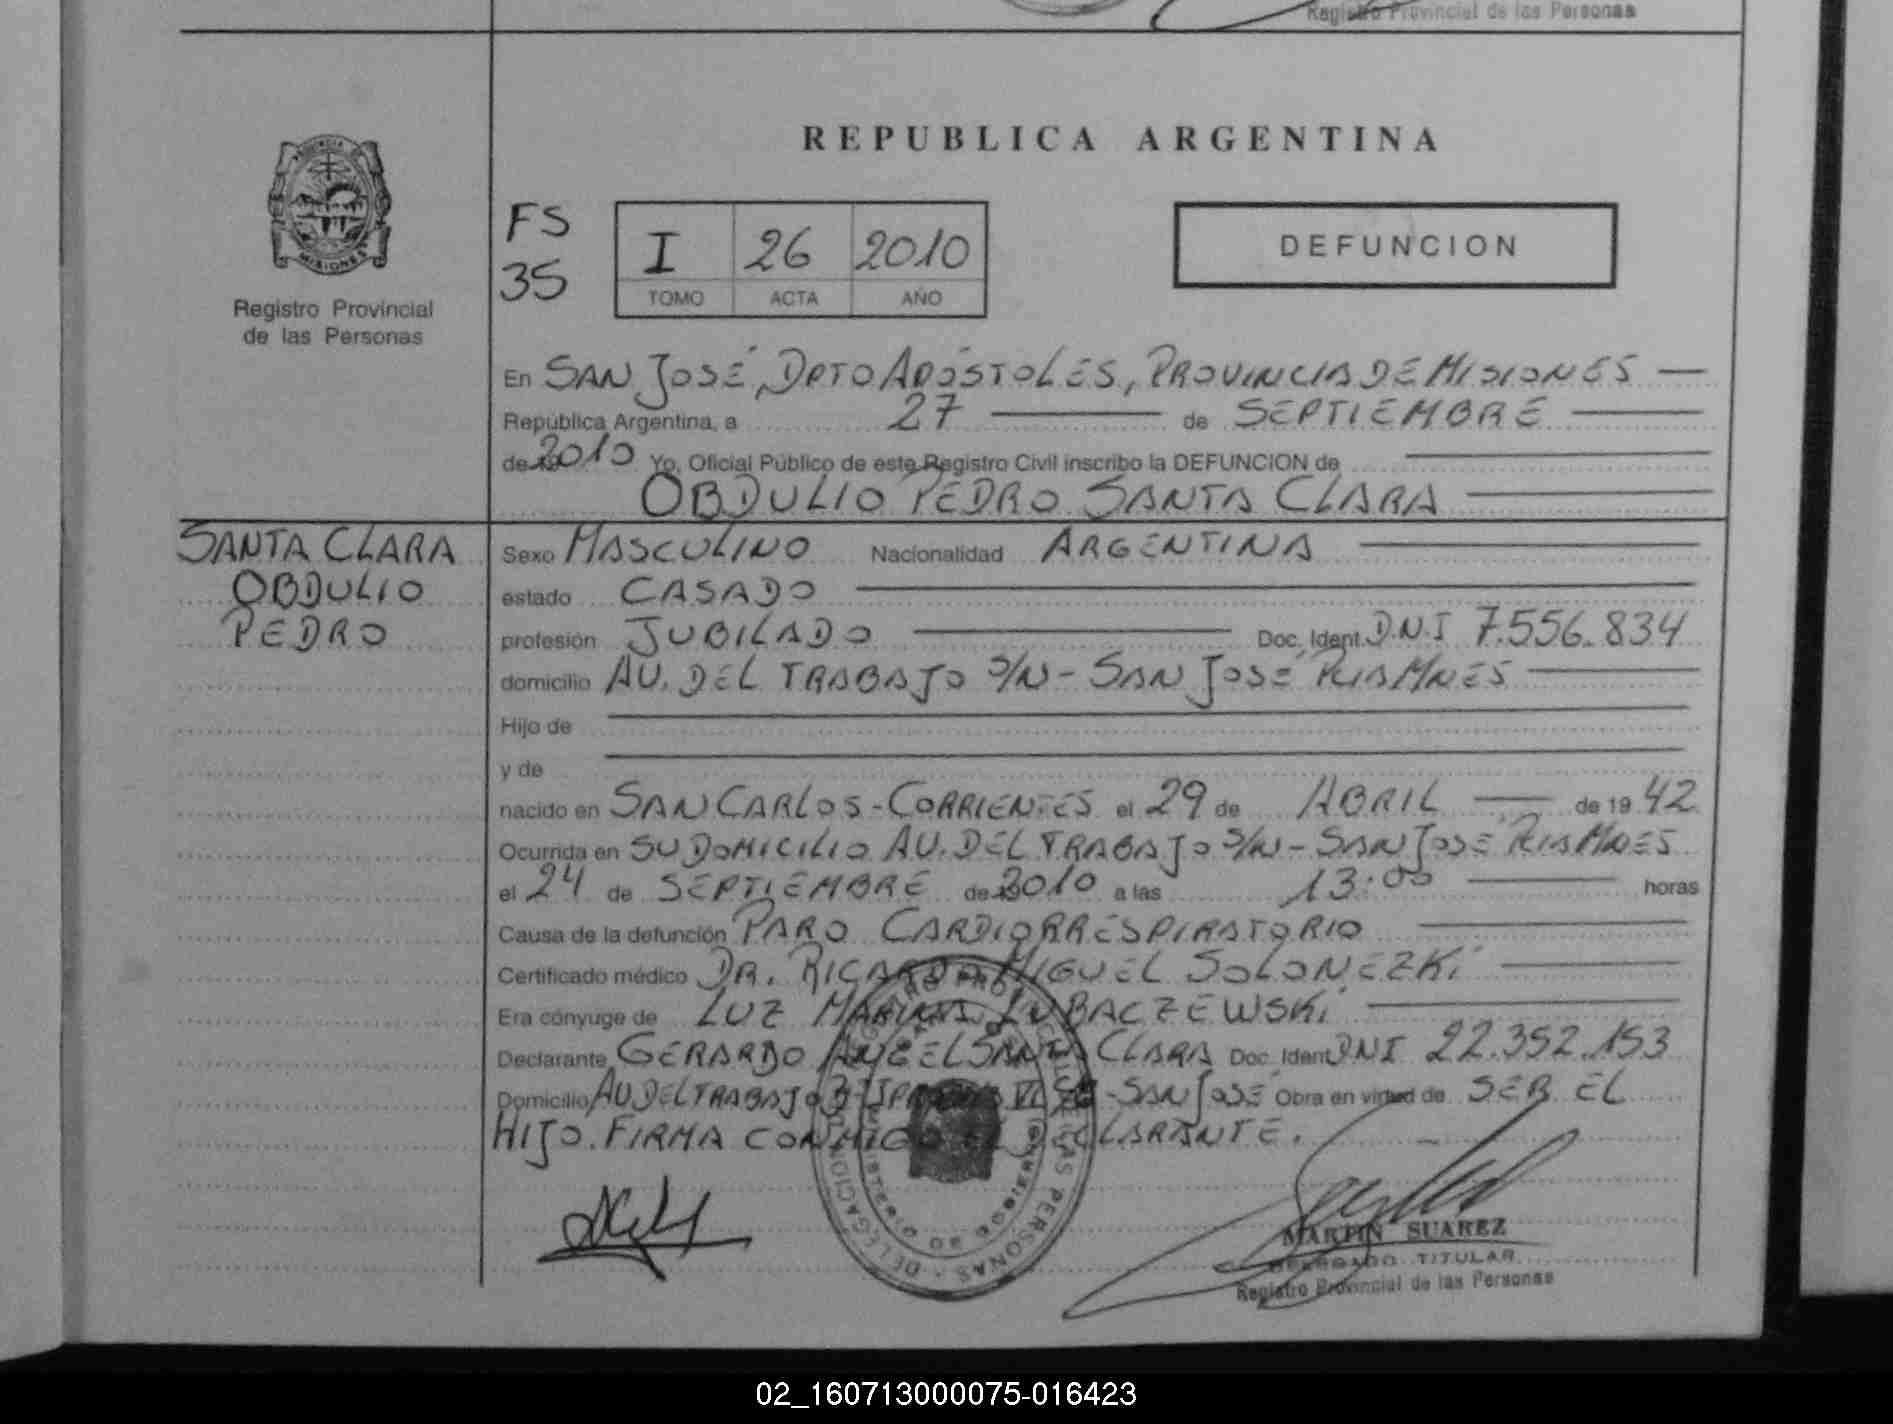 Registro Provincial de las Personas
REPUBLICA ARGENTINA
MISIONES
Registro Provincial
de las Personas
FS
35
I 26 2010
TOMO ACTA AÑO
DEFUNCION
En SAN JOSÉ, DPTO APÓSTOLES, PROVINCIA DE MISIONES
República Argentina, a 27 de SEPTIEMBRE
de 19 2010 Yo, Oficial Público de este Registro Civil inscribo la DEFUNCION de
OBDULIO PEDRO SANTA CLARA
SANTA CLARA
OBDULIO
PEDRO
Sexo MASCULINO Nacionalidad ARGENTINA
estado CASADO
profesión JUBILADO Doc. Ident. D.N.I 7.556.834
domicilio AV. DEL TRABAJO S/N - SAN JOSÉ PCIA MNES
Hijo de
y de
nacido en SAN CARLOS - CORRIENTES el 29 de ABRIL de 19 42
Ocurrida en SU DOMICILIO AV. DEL TRABAJO S/N - SAN JOSÉ PCIA MNES
el 24 de SEPTIEMBRE de 19 2010 a las 13:00 horas
Causa de la defunción PARO CARDIORRESPIRATORIO
Certificado médico DR. RICARDO MIGUEL SOLONEZKI
Era cónyuge de LUZ MARINA LUBACZEWSKI
Declarante GERARDO ANGEL SANTA CLARA Doc. Ident. DNI 22.352.153
Domicilio AV DEL TRABAJO - SAN JOSÉ Obra en virtud de SER EL
HIJO. FIRMA CONMIGO EL DECLARANTE.
MARTIN SUAREZ
DELEGADO TITULAR
Registro Provincial de las Personas
02_160713000075-016423